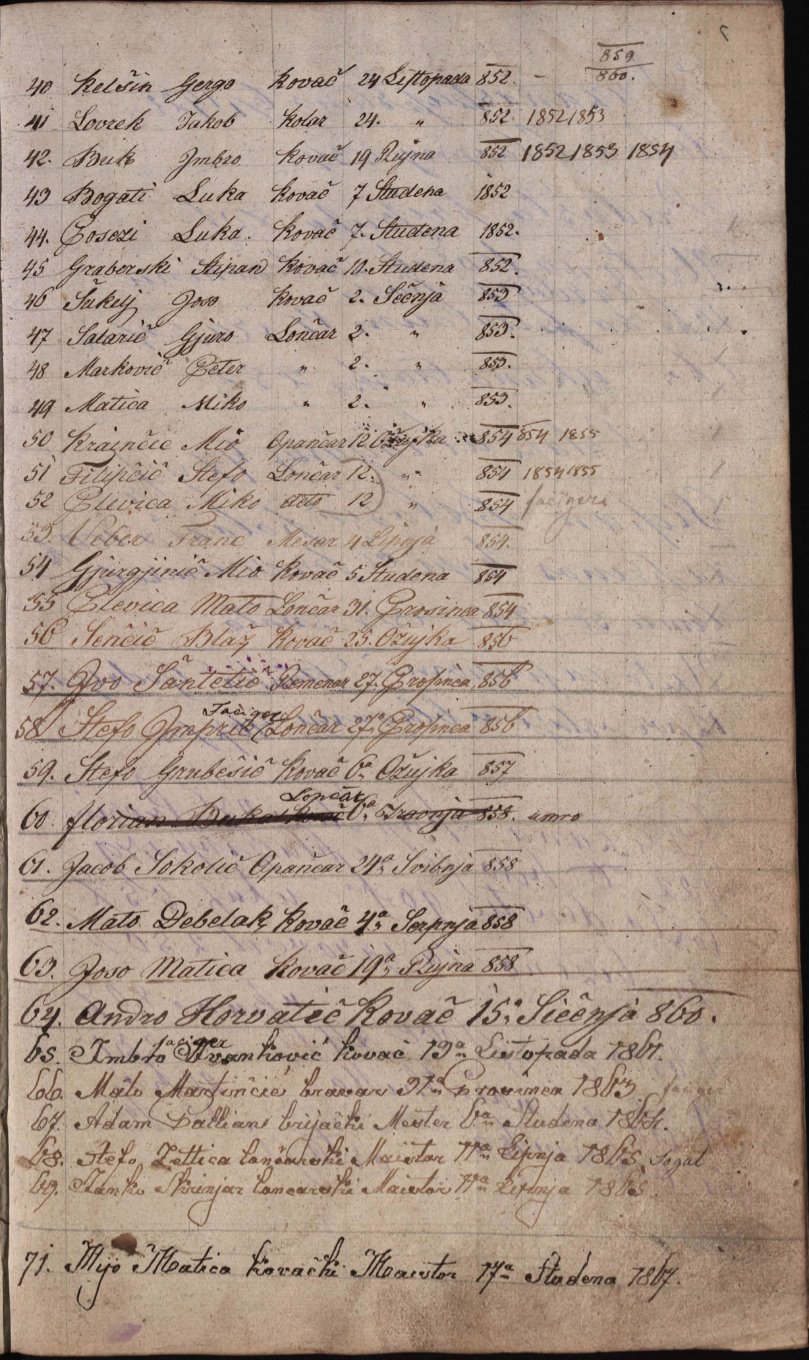 859
860.
40 Kelšin Gergo Kovač 24 Listopada 852. –
41 Lovrek Jakob Kolar 24. " 852 1852 1853
42. Buk Jmbro Kovač 19 Rujna 852 1852 1853 1854
43 Bogati Luka Kovač 7 Studena 1852
44. Luka. Kovač 7. Studena 1852.
45 Graberski Stipan Kovač 10. Studena 852.
46 Joso Kovač 2. Sečnja 853
47 Salarič Gjuro Lončar 2. " 853.
48 Markovič Peter " 2. " 853.
49 Matica Miko " 2. " 853.
50 Mio Opančar 12 Ožujka 854 854 1855
51 Filipčič Stefo Lončar 12. " 854 1854 1855
52 Plevica Miko deto 12 " 854
53. Veber Franc Mesar 4 Lipnja 854.
54 Gjurgjinič Mio Kovač 5 Studena 854
55 Plevica Mato Lončar 31. Prosinca 854
56 Senčič Blaž Kovač 25. Ožujka 856
57. Jvo Šantetič Remenar 27. Prosinca 856
Tačiger
58 Stefo Lončar 27a Prosinca 856
59. Stefo Grubešič Kovač 6a Ožujka 857
Lončar
60. florian Buk 6a Travnja 858. umro
61. Jacob Sokolič Opančar 24a Svibnja 858
62. Mato Debelak Kovač 4a Serpnja 858
63. Joso Matica Kovač 19a Rujna 858
64. Andro Horvatič Kovač 15a Siečnja 860.
tačiger
65. Jmbro Ivanković kovač 13a Listopada 1861.
66. Mato Martinčić bravar 31a Prosinca 1863
67. Adam brijački Mester 6a Studena 1864.
68. Stefo Lončarski Maistor 11a Lipnja 1865
69. Janko Skrinjar Loncarski Maistor 11a Lipnja 1865
71. Mijo Matica Kovački Maistor 17a Studena 1867.